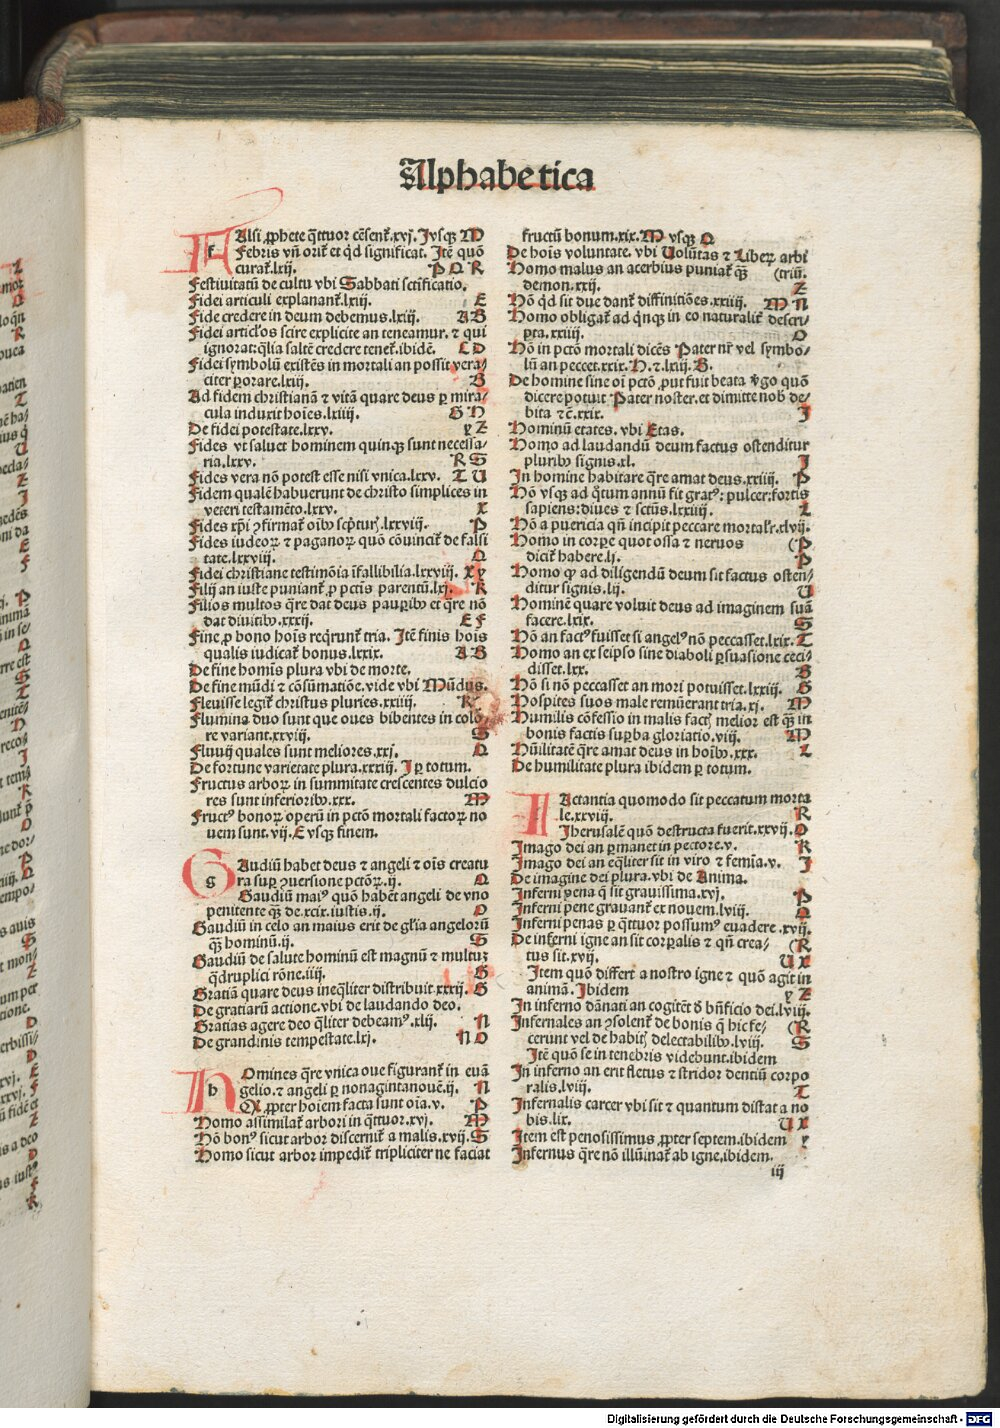 Alphabetica
Alsi ꝓphete q̄ttuor cēsent᷑.xvj. Jvsqꝫ M
f Febris vn̄ orit᷑ et qd̓ significat. Itē quō
curat᷑.lxij. P Q R
Festiuitatū de cultu vbi Sabbati sctificatio.
Fidei articuli explanant᷑.lxij. E
Fide credere in deum debemus.lxiij. A B
Fidei artic̓los scire explicite an teneamur. ⁊ qui
ignorāt: q̄lia saltē credere tenet᷑.ibidē. C D
Fidei symbolū existēs in mortali an possit vera/
citer ꝑorare.lxiij. B
Ad fidem christianā ⁊ vitā quare deus ꝑ mira/
cula induxit hoīes.lxiiij. G H
De fidei potestate.lxxv. y Z
Fides vt saluet hominem quinqꝫ sunt necessa/
ria.lxxv. R S
Fides vera nō potest esse nisi vnica.lxxv. T U
Fidem qualē habuerunt de christo simplices in
veteri testamēto.lxxv. X
Fides xp̄i ꝯfirmat᷑ oībꝰ scṗturꝭ.lxxviij. P
Fides iudeoꝝ ⁊ paganoꝝ quō cōuincit᷑ de falsi
tate.lxxviij. Q
Fidei christiane testimōia īfallibilia.lxxviij. X y
Filij an iuste puniant᷑ ꝓ pctis parentū.lxj. K
Filios multos q̄re dat deus pauꝑibꝰ et q̄re nō
dat diuitibꝰ.xxxij. E F
Fine ꝓ bono hoīs reqrunt᷑ tria. Itē finis hoīs
qualis iudicat᷑ bonus.lxxix. A B
De fine homīs plura vbi de morte.
De fine mūdi ⁊ cōsūmatiōe.vide vbi Mūdus.
Fleuisse legit᷑ christus pluries.xxiiij. R
Flumina duo sunt que oues bibentes in colo/
re variant.xxviij. S
Fluuij quales sunt meliores.xxj. Q
De fortune varietate plura.xxxiij. I ꝑ totum.
Fructus arboꝝ in summitate crescentes dulcio
res sunt inferioribꝰ.xxx. M
Fructꝰ bonoꝝ operū in pctō mortali factoꝝ no
uem sunt.vij. E vsqꝫ finem.
Gaudiū habet deus ⁊ angeli ⁊ oīs creatu
g ra suꝑ ꝯuersione pctōꝝ.ij. Q
Gaudiū maiꝰ quō habēt angeli de vno
penitente qꝫ de.xcix.iustis.ij. O
Gaudiū in celo an maius erit de gl̓ia angelorū
qꝫ hominū.ij. S
Gaudiū de salute hominū est magnū ⁊ multuꝫ
qd̄ruplici rōne.iiij. G
Gratiā quare deus ineq̄liter distribuit.xxxij. G
De gratiarū actione.vbi de laudando deo.
Gratias agere deo q̄liter debeamꝰ.xlij. N
De grandinis tempestate.lxj. N O
Homines q̄re vnica oue figurant᷑ in euā
h gelio.⁊ angeli ꝑ nonagintanouē.ij. N
Q ꝓpter hoīem facta sunt oīa.v. P
Homo assimilat᷑ arbori in q̄ttuor.xvj. M
Hō bonꝰ sicut arbor discernit᷑ a malis.xvij. S
Homo sicut arbor impedit᷑ tripliciter ne faciat
fructū bonum.xix. M vsqꝫ Q
De hoīs voluntate. vbi Volūtas ⁊ Liberꝝ arbi
Homo malus an acerbius puniat᷑ qꝫ (triū.
demon.xxij. Z
Hō qd̓ sit due dant᷑ diffinitiōes.xxiiij. M N
Homo obligat᷑ ad qnqꝫ in eo naturalit᷑ descri/
pta.xxiiij. O
Hō in pctō mortali dicēs Pater nr̄ vel symbo/
lū an peccet.xxix. H. ⁊.lxiij. B.
De homine sine oī pctō ,put fuit beata v̓go quō
dicere potuit Pater noster. et dimitte nob̓ de/
bita ⁊ c̄.xxix. J
Hominū etates. vbi Etas.
Homo ad laudandū deum factus ostenditur
pluribꝰ signis.xl. J
In homine habitare q̄re amat deus.xxiiij. P
Hō vsqꝫ ad q̄tum annū fit gratꝰ: pulcer:fortis
sapiens:diues ⁊ sctūs.lxxiiij. L
Hō a puericia qn̄ incipit peccare mortal̓r.xlvij.
Homo in corꝑe quot ossa ⁊ neruos (P
dicit᷑ habere.lj. P
Homo ꝙ ad diligendū deum sit factus osten/
ditur signis.lij. U
Hominē quare voluit deus ad imaginem suā
facere.lxix. S
Hō an factꝰ fuisset si angelꝰ nō peccasset.lxix. T
Homo an ex seipso sine diaboli ꝑsuasione ceci/
disset.lxx. B
Hō si nō peccasset an mori potuisset.lxxiij. G
Hospites suos male remūerant tria.xj. M
Humilis cōfessio in malis factꝭ melior est qꝫ in
bonis factis suꝑba gloriatio.viij. M
Hūilitatē q̄re amat deus in hoībꝰ.xxx. L
De humilitate plura ibidem ꝑ totum.
Iactantia quomodo sit peccatum morta
le.xxviij. R
Iherusalē quō destructa fuerit.xxvij. O
Imago dei an ꝑmanet in pectore.v. K
Imago dei an eq̄liter sit in viro ⁊ femīa.v. J
De imagine dei plura.vbi de Anima.
Inferni pena q̄ sit grauissima.xvj. P
Inferni pene grauant᷑ ex nouem.lviij. Q
Inferni penas ꝑ q̄ttuor possumꝰ euadere.xvij.
De inferni igne an sit corꝑalis ⁊ qn̄ crea/ (R
tus sit.xvij. U X
Item quō differt a nostro igne ⁊ quō agit in
animā. Ibidem y Z
In inferno dānati an cogitēt d̓ bn̄ficio dei.lviij.
Infernales an ꝯsolent᷑ de bonis q̄ hic fe/ (R
cerunt vel de habitꝭ delectabilibꝰ.lviij. S
Itē quō se in tenebris videbunt.ibidem
In inferno an erit fletus ⁊ stridor dentiū corpo
ralis.lviij. T
Infernalis carcer vbi sit ⁊ quantum distat a no
bis.lix. U X
Item est penosissimus ꝓpter septem.ibidem y
Infernus q̄re nō illūinat᷑ ab igne.ibidem.
iij
Digitalisierung gefördert durch die Deutsche Forschungsgemeinschaft - DFG